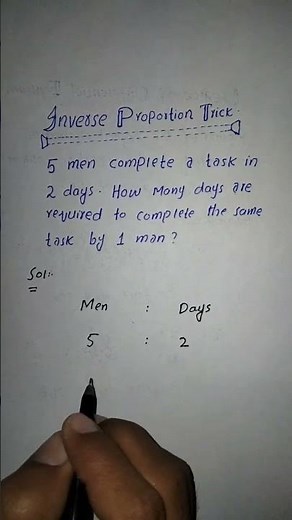 Inverse Proportion Trick.
5 men complete a task in
2 days. How many days are
required to complete the same
task by 1 man?
Sol:-
Men : Days
5 : 2